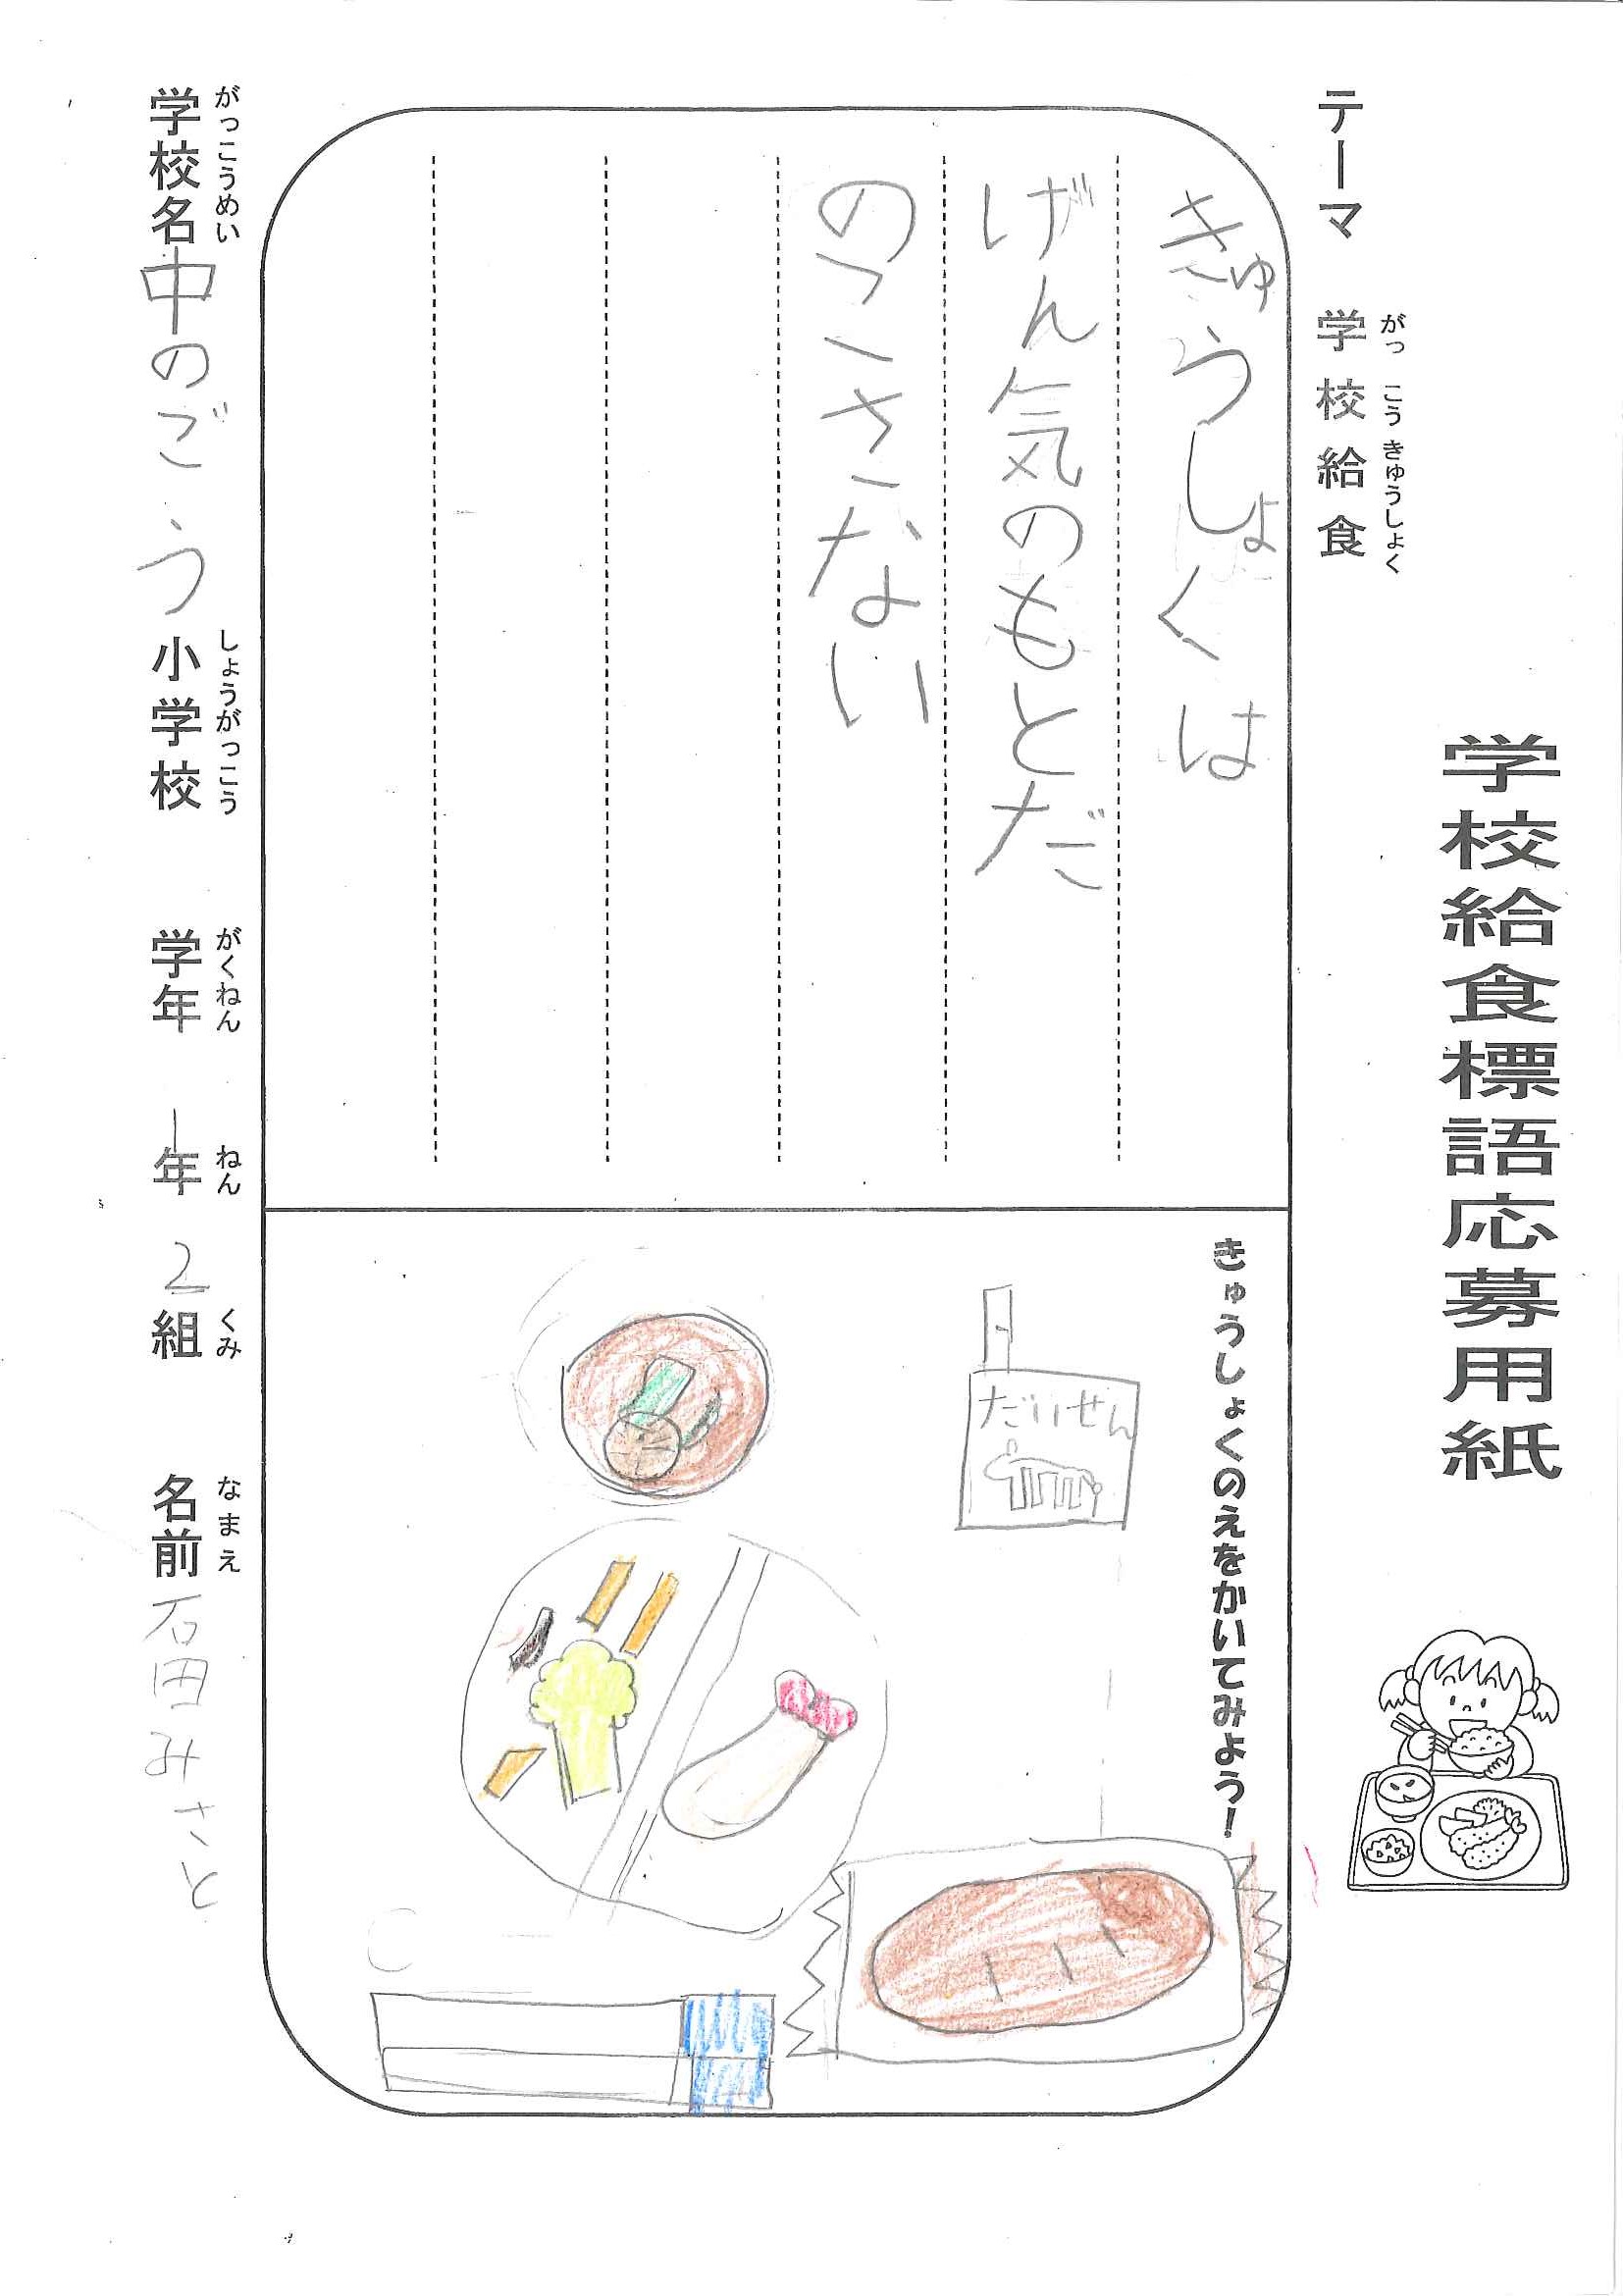 学校給食標語応募用紙
テーマ 学校給食
がっこうきゅうしょく
きゅうしょくは
げん気のもとだ
のこさない
きゅうしょくのえをかいてみよう!
だいせん
がっこうめい しょうがっこう がくねん ねん くみ なまえ
学校名 中のごう 小学校 学年 1年 2組 名前 石田みさと